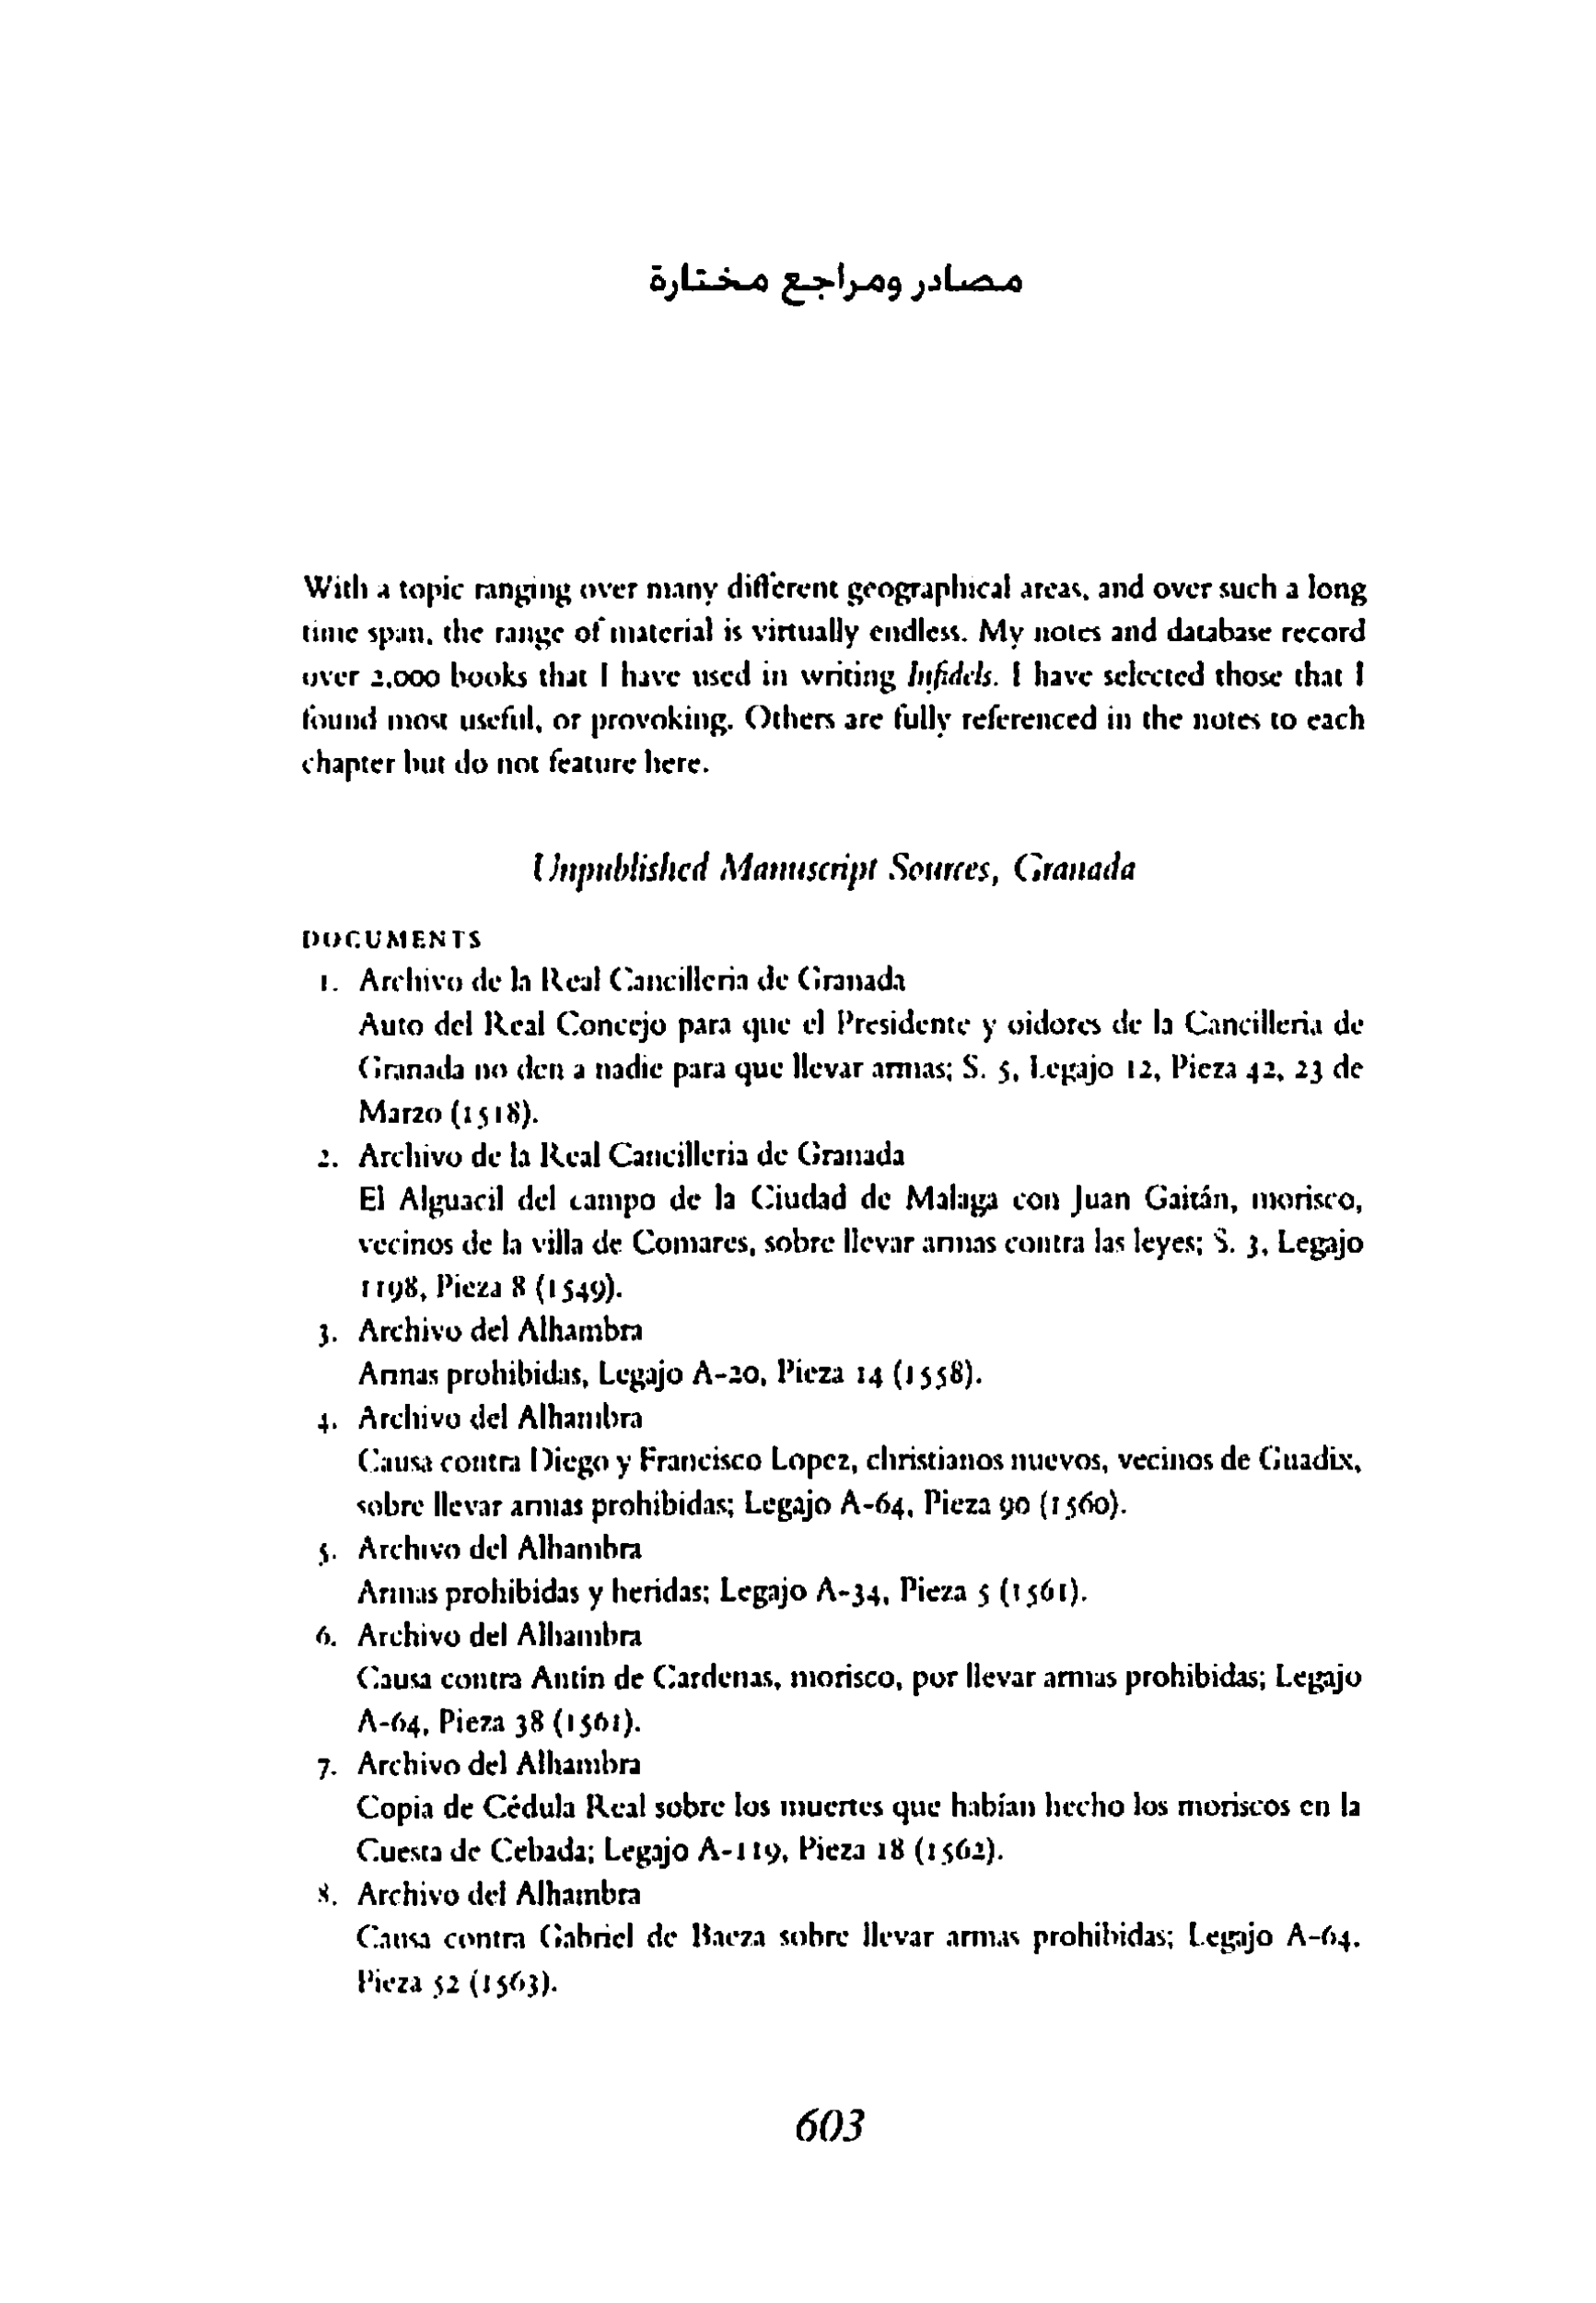 مصادر ومراجع مختارة
With a topic ranging over many different geographical areas, and over such a long
time span, the range of material is virtually endless. My notes and database record
over 2,000 books that I have used in writing Infidels. I have selected those that I
found most useful, or provoking. Others are fully referenced in the notes to each
chapter but do not feature here.
Unpublished Manuscript Sources, Granada
DOCUMENTS
1. Archivo de la Real Cancilleria de Granada
Auto del Real Concejo para que el Presidente y oidores de la Cancilleria de
Granada no den a nadie para que llevar armas; S. 5, Legajo 12, Pieza 42, 23 de
Marzo (1518).
2. Archivo de la Real Cancilleria de Granada
El Alguacil del campo de la Ciudad de Malaga con Juan Gaitán, morisco,
vecinos de la villa de Comares, sobre llevar armas contra las leyes; S. 3, Legajo
1198, Pieza 8 (1549).
3. Archivo del Alhambra
Armas prohibidas, Legajo A-20, Pieza 14 (1558).
4. Archivo del Alhambra
Causa contra Diego y Francisco Lopez, christianos nuevos, vecinos de Guadix,
sobre llevar armas prohibidas; Legajo A-64, Pieza 90 (1560).
5. Archivo del Alhambra
Armas prohibidas y heridas; Legajo A-34, Pieza 5 (1561).
6. Archivo del Alhambra
Causa contra Antin de Cardenas, morisco, por llevar armas prohibidas; Legajo
A-64, Pieza 38 (1561).
7. Archivo del Alhambra
Copia de Cédula Real sobre los muertes que habían hecho los moriscos en la
Cuesta de Cebada; Legajo A-119, Pieza 18 (1562).
8. Archivo del Alhambra
Causa contra Gabriel de Baeza sobre llevar armas prohibidas; Legajo A-64,
Pieza 52 (1563).
603